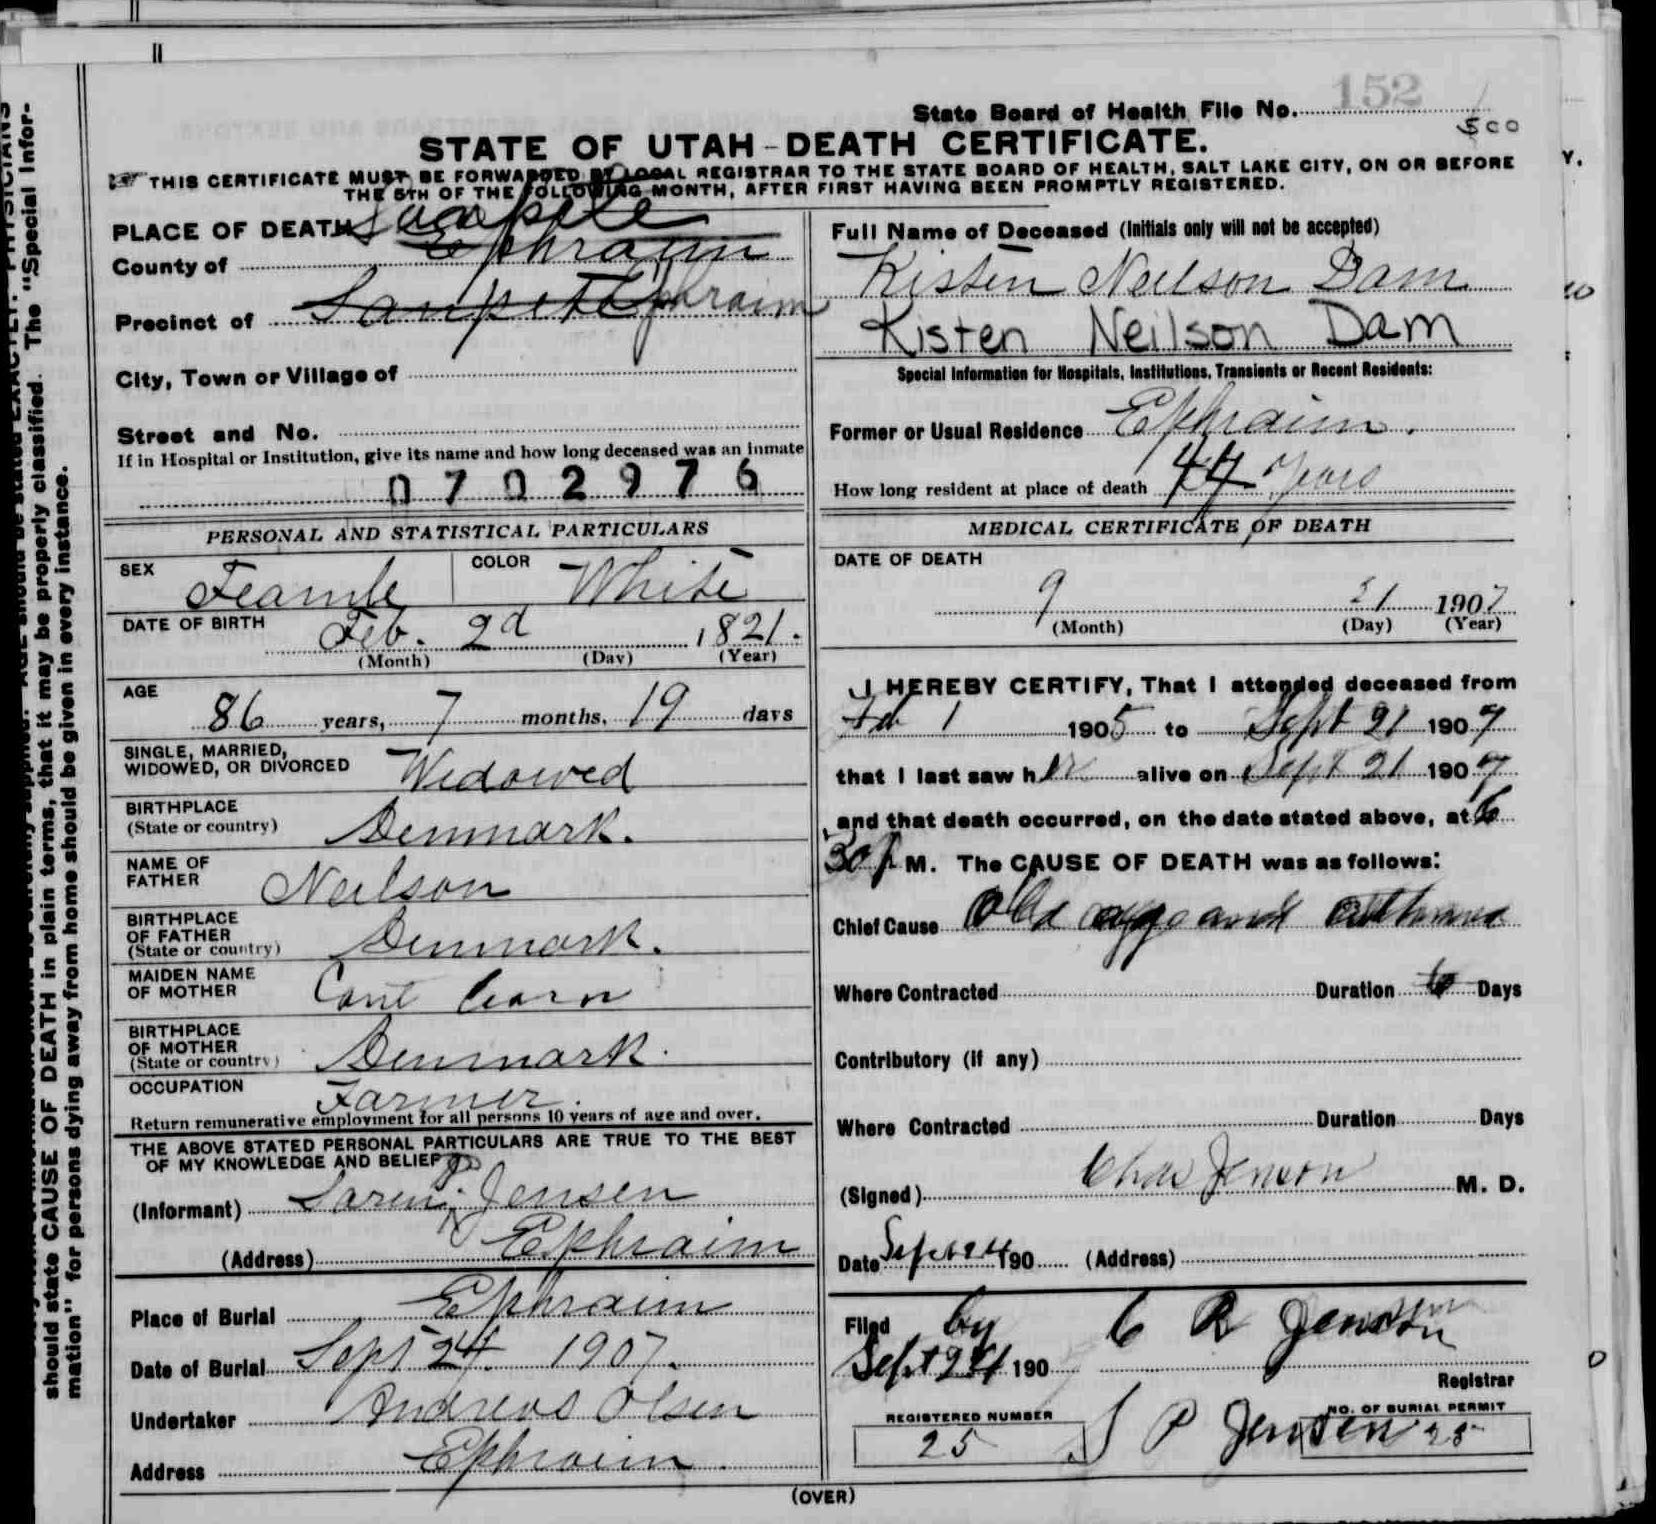 should state CAUSE OF DEATH in plain terms, that it may be properly classified. The "Special Infor-
mation" for persons dying away from home should be given in every instance.
152
State Board of Health File No.
500
STATE OF UTAH-DEATH CERTIFICATE.
THIS CERTIFICATE MUST BE FORWARDED BY LOCAL REGISTRAR TO THE STATE BOARD OF HEALTH, SALT LAKE CITY, ON OR BEFORE
THE 5TH OF THE FOLLOWING MONTH, AFTER FIRST HAVING BEEN PROMPTLY REGISTERED.
PLACE OF DEATH Sanpete
County of Ephraim
Precinct of Sanpete Ephraim
City, Town or Village of
Street and No.
If in Hospital or Institution, give its name and how long deceased was an inmate
0702976
PERSONAL AND STATISTICAL PARTICULARS
SEX Feamle COLOR White
DATE OF BIRTH Feb. 2d 1821.
(Month) (Day) (Year)
AGE
86 years, 7 months, 19 days
SINGLE, MARRIED,
WIDOWED, OR DIVORCED Widowed
BIRTHPLACE
(State or country) Denmark.
NAME OF
FATHER Neilson
BIRTHPLACE
OF FATHER
(State or country) Denmark.
MAIDEN NAME
OF MOTHER Cant Learn
BIRTHPLACE
OF MOTHER
(State or country) Denmark.
OCCUPATION Farmer.
Return remunerative employment for all persons 10 years of age and over.
THE ABOVE STATED PERSONAL PARTICULARS ARE TRUE TO THE BEST
OF MY KNOWLEDGE AND BELIEF
(Informant) Jensen
(Address) Ephraim
Place of Burial Ephraim
Date of Burial Sept 24. 1907.
Undertaker Andreas Olsen
Address Ephraim.
Full Name of Deceased (Initials only will not be accepted)
Kisten Neilson Dam
Kisten Neilson Dam
Special Information for Hospitals, Institutions, Transients or Recent Residents:
Former or Usual Residence Ephraim.
How long resident at place of death Years
MEDICAL CERTIFICATE OF DEATH
DATE OF DEATH
9 21 1907
(Month) (Day) (Year)
I HEREBY CERTIFY, That I attended deceased from
Feb 1 1905 to Sept 21 1907
that I last saw her alive on Sept 21 1907
and that death occurred, on the date stated above, at 6
30 P M. The CAUSE OF DEATH was as follows:
Chief Cause Old age and asthma
Where Contracted Duration 6 Days
Contributory (if any)
Where Contracted Duration Days
(Signed) Chas Jenson M. D.
Date Sept 24 190 (Address)
Filed by C R Jensen
Sept 24 190
Registrar
REGISTERED NUMBER NO. OF BURIAL PERMIT
25 S P Jensen 25
(OVER)